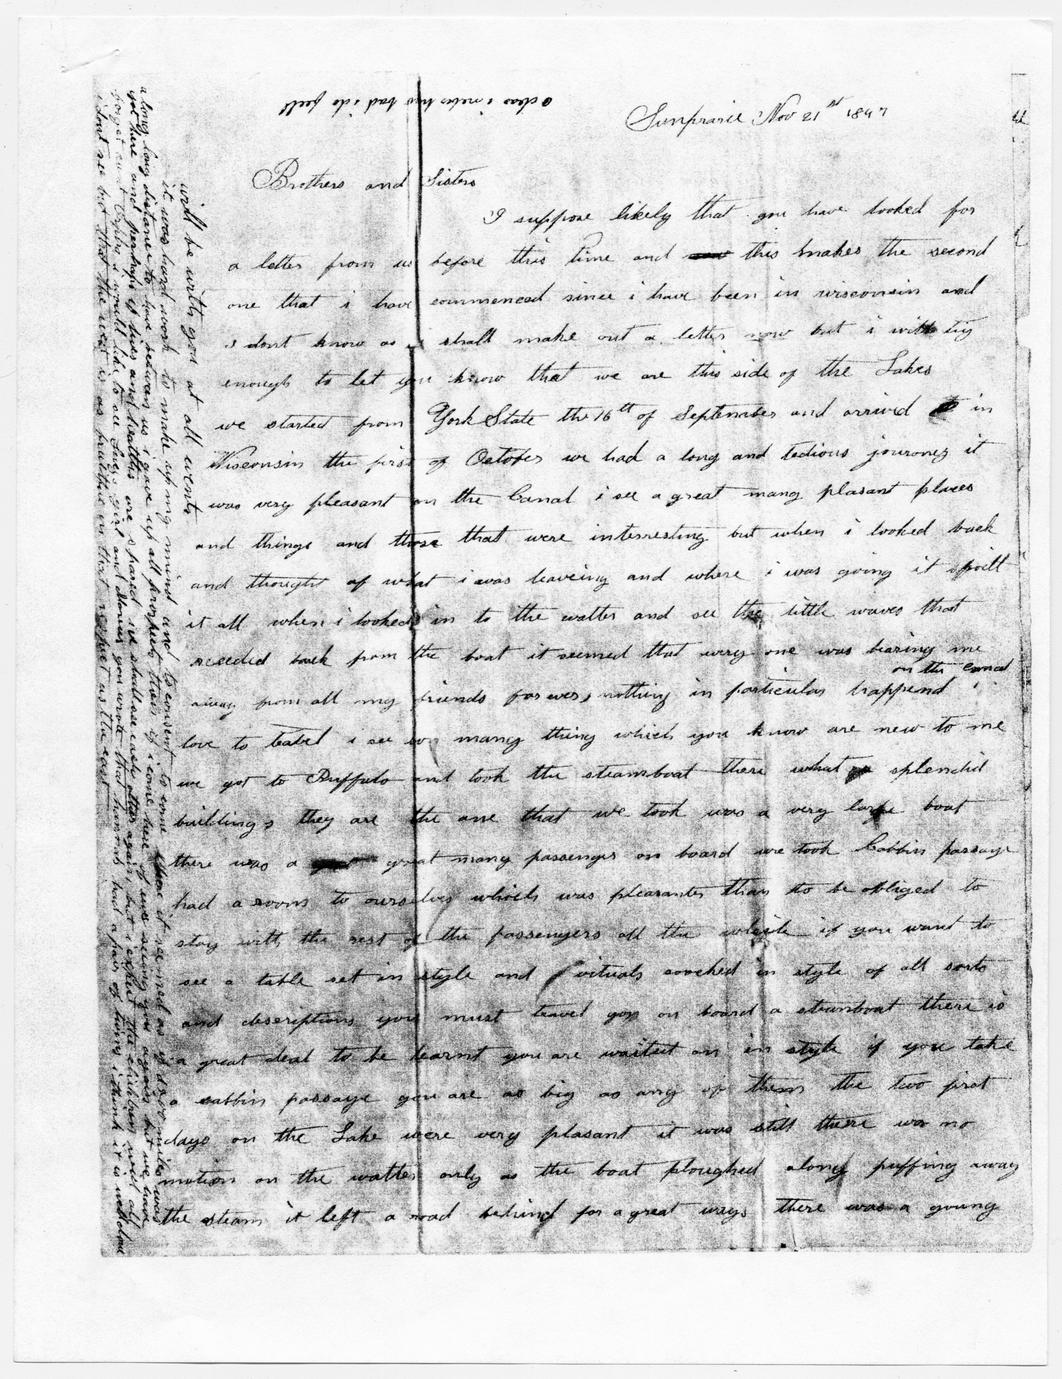 Sunprairie Nov 21st 1847
Brothers and Sisters
I suppose likely that you have looked for
a letter from us before this time and this makes the second
one that i have commenced since i have been in wisconsin and
i dont know as i shall make out a letter now but i will try
enough to let you know that we are this side of the Lakes
we started from York State the 16th of September and arrived in
Wisconsin the first of October we had a long and tedious journey it
was very pleasant on the Canal i see a great many plasant places
and things and those that were interresting but when i looked back
and thought of what i was leaveing and where i was going it spoilt
it all when i looked in to the watter and see the little waves that
receded back from the boat it seemed that every one was bearing me
on the canal
away from all my friends forever nothing in particular happend
love to Isabel i see so many thing which you know are new to me
we got to Buffalo and took the steamboat there what splendid
buildings they are the one that we took was a very large boat
there was a great many passenger on board we took Cabbin passage
had a room to ourselves which was pleasanter than to be obliged to
stay with the rest of the passengers all the while if you want to
see a table set in style and vituals coocked in style of all sorts
and descriptions you must travel gon on board a steamboat there is
a great deal to be learnt you are waited on in style if you take
a cabbin passage you are as big as any of them the two first
days on the Lake were very pleasant it was still there was no
motion on the watter only as the boat ploughed along puffing away
the steam it left a road behind for a great ways there was a young
will be write you at all events
it was hard work to make up my mind and to consent to come it seemed as if
a long long distance to have between us i gave up all prospects then if i come here of ever seeing you again but we have
got here and perhaps if lives and healths are spared we shall see each other again but i expect the children will all
forget aunt i would like to see Lucy girl and you wrote that hannah had a pair of twins i think it is
i dont see but that the west is as fruitful in that respect as the east